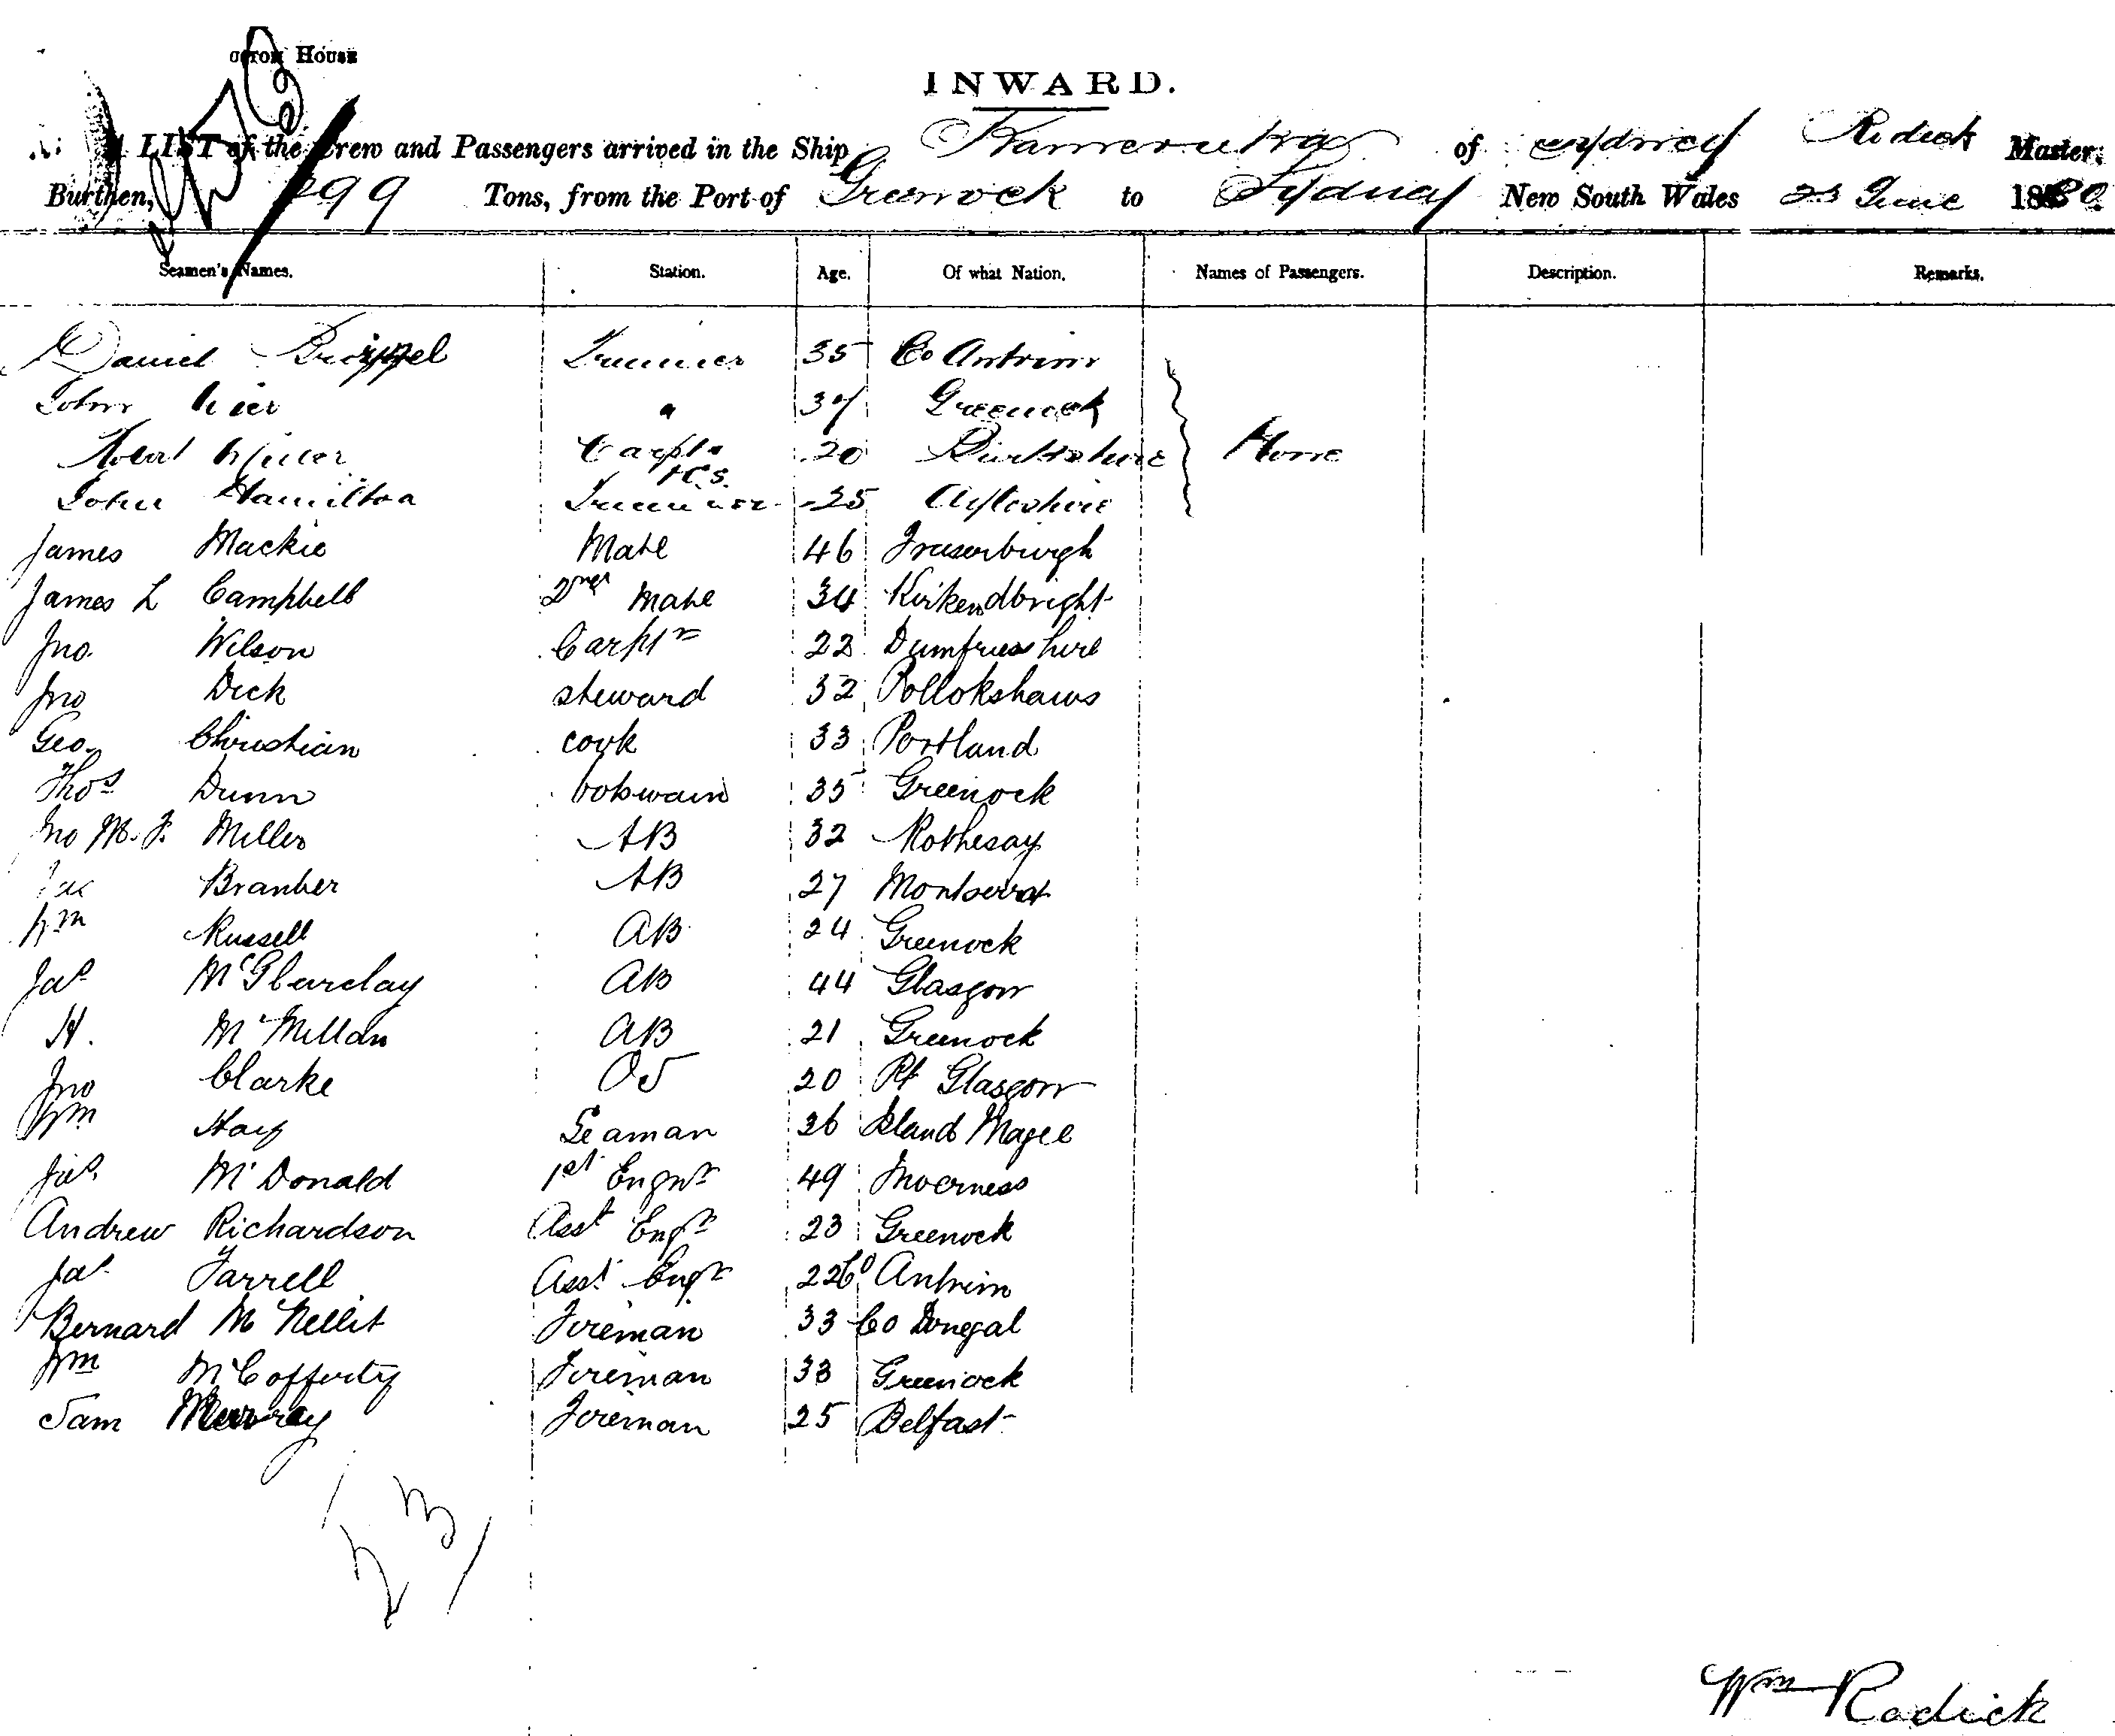 House
INWARD.
LIST of the Crew and Passengers arrived in the Ship Kameruka of Sydney Rodick Master,
Burthen, 99 Tons, from the Port of Greenock to Sydney New South Wales 23 June 1880
Seamen's Names. Station. Age. Of what Nation. Names of Passengers. Description. Remarks.
Daniel Trimmer 35 Co Antrim
John " 37 Greenock
Robert Carptr 20 None
John Hamilton Trimmer 25
James Mackie Mate 46 Fraserburgh
James L Campbell 2nd Mate 34 Kirkendbright
Jno. Wilson Carptr 22 Dumfriesshire
Jno Dick steward 32 Pollokshaws
Geo. Christian cook 33 Portland
Thos Dunn botswain 35 Greenock
Jno M. F. Miller AB 32 Rothesay
Branber AB 27 Montserrat
Wm Russell AB 24 Greenock
Jas AB 44 Glasgow
H. McMillan AB 21 Greenock
Jno Clarke OS 20 Pt Glasgow
Wm Hay Seaman 36 Island Magee
Jas. McDonald 1st Engnr 49 Inverness
Andrew Richardson Asst Engr 23 Greenock
Jas Farrell Asst Engr 22 Co Antrim
Bernard McNellis Fireman 33 Co Donegal
Wm McCofferty Fireman 33 Greenock
Sam Murray Fireman 25 Belfast
23
Wm Rodick